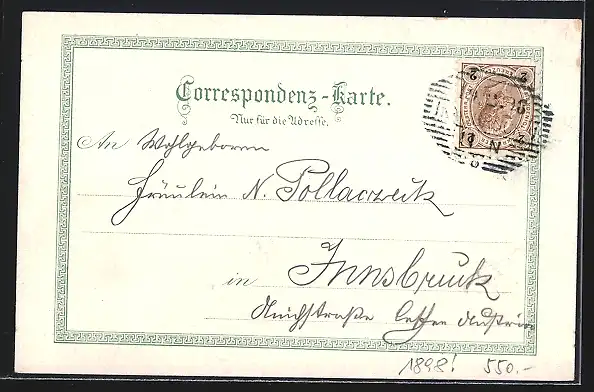 Correspondenz-Karte.
Nur für die Adresse.
An Wohlgeboren
Fräulein N. Pollaczek
in Innsbruck
1898! 550.-